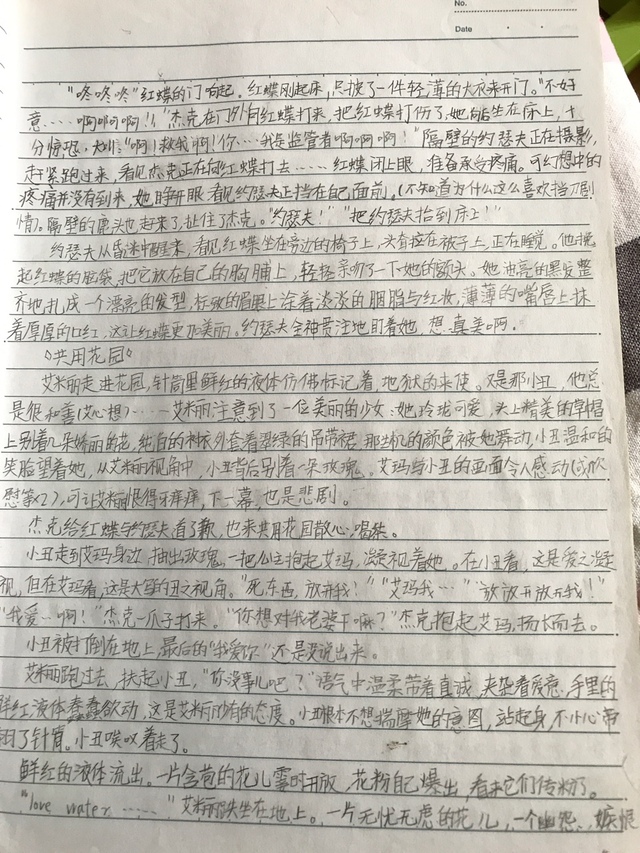 No.
Date
"咚咚咚"红蝶的门响起。红蝶刚起床,只披了一件轻薄的大衣来开门。"不好
意……啊啊啊啊!!"杰克在门外向红蝶打来,把红蝶打伤了,她向后坐在床上,十
分惊恐,大叫:"啊!救我啊!你…我是监管者啊啊啊!"隔壁的约瑟夫正在摄影,
赶紧跑过来,看见杰克正在向红蝶打去……红蝶闭上眼,准备承受疼痛。可幻想中的
疼痛并没有到来,她睁开眼看见约瑟夫正挡在自己面前。(不知道为什么这么喜欢挡刀剧
情)。隔壁的鹿头也起来了,扯住了杰克。"约瑟夫!""把约瑟夫抬到床上!"
约瑟夫从昏迷中醒来,看见红蝶坐在旁边的椅子上,头靠在被子上,正在睡觉。他挽
起红蝶的脑袋,把它放在自己的胸脯上,轻轻亲吻了一下她的额头。她油亮的黑发整
齐地扎成一个漂亮的发型,标致的眉眼上涂着淡淡的胭脂与红妆,薄薄的嘴唇上抹
着厚厚的口红,这让红蝶更加美丽。约瑟夫全神贯注地盯着她,想:真美啊。
《共用花园》
艾米丽走进花园,针筒里鲜红的液体仿佛标记着,地狱的来使。又是那小丑,他总
是很和善(艾心想)……艾米丽注意到了一位美丽的少女:她玲珑可爱,头上精美的草帽
上别着几朵娇丽的花,纯白的衬衣外套着翠绿的吊带裙,那些机的颜色被她舞动,小丑温和的
笑脸望着她,从艾米丽视角中,小丑背后别着一朵玫瑰。艾玛与小丑的画面令人感动(或欣
慰等(2),可让艾米丽恨得牙痒痒,下一幕,也是悲剧。
杰克给红蝶与约瑟夫道了歉,也来共用花园散心,喝茶。
小丑走到艾玛身边,抽出玫瑰,一把公主抱起艾玛,凝视着她。在小丑看,这是爱之凝
视,但在艾玛看,这是大笨的丑之视角。"死东西,放开我!""艾玛我…""放放开放开我!"
"我爱…啊!"杰克一爪子打来。"你想对我老婆干嘛?"杰克抱起艾玛,扬长而去。
小丑被打倒在地上,最后的"我爱你"还是没说出来。
艾米丽跑过去,扶起小丑,"你没事儿吧?"语气中温柔带着真诚,夹杂着爱意,手里的
鲜红液体蠢蠢欲动,这是艾米丽仅有的态度。小丑根本不想揣摩她的意图,站起身,不小心带
翻了针筒。小丑唉叹着走了。
鲜红的液体流出。一片含苞的花儿霎时开放,花粉自己爆出,看来它们传粉了。
"love water ……"艾米丽跌坐在地上。一片无忧无虑的花儿,一个幽怨、嫉恨